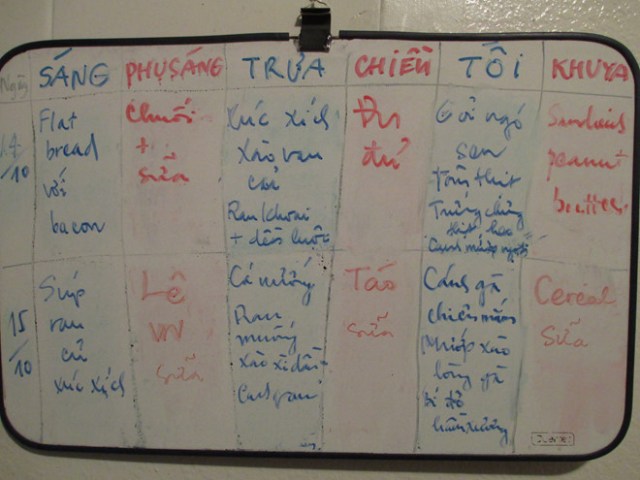 Ngày
SÁNG
PHỤSÁNG
TRƯA
CHIỀU
TỐI
KHUYA
14/10
Flat
bread
với
bacon
Chuối
+
sữa
Xúc xích
Xào rau
cải
Rau khoai
+ dền luộc
Đu
đủ
Gỏi ngó
sen
tôm thịt
Trứng chưng
thịt heo
Canh mướp ngọt
Sandwich
peanut
butter
15/10
Súp
rau
củ
xúc xích
Lê
sữa
Cá nướng
Rau
muống
xào xì dầu
Táo
sữa
Cánh gà
chiên mắm
Mướp xào
lòng gà
Bí đỏ
hầm xương
Cereal
Sữa